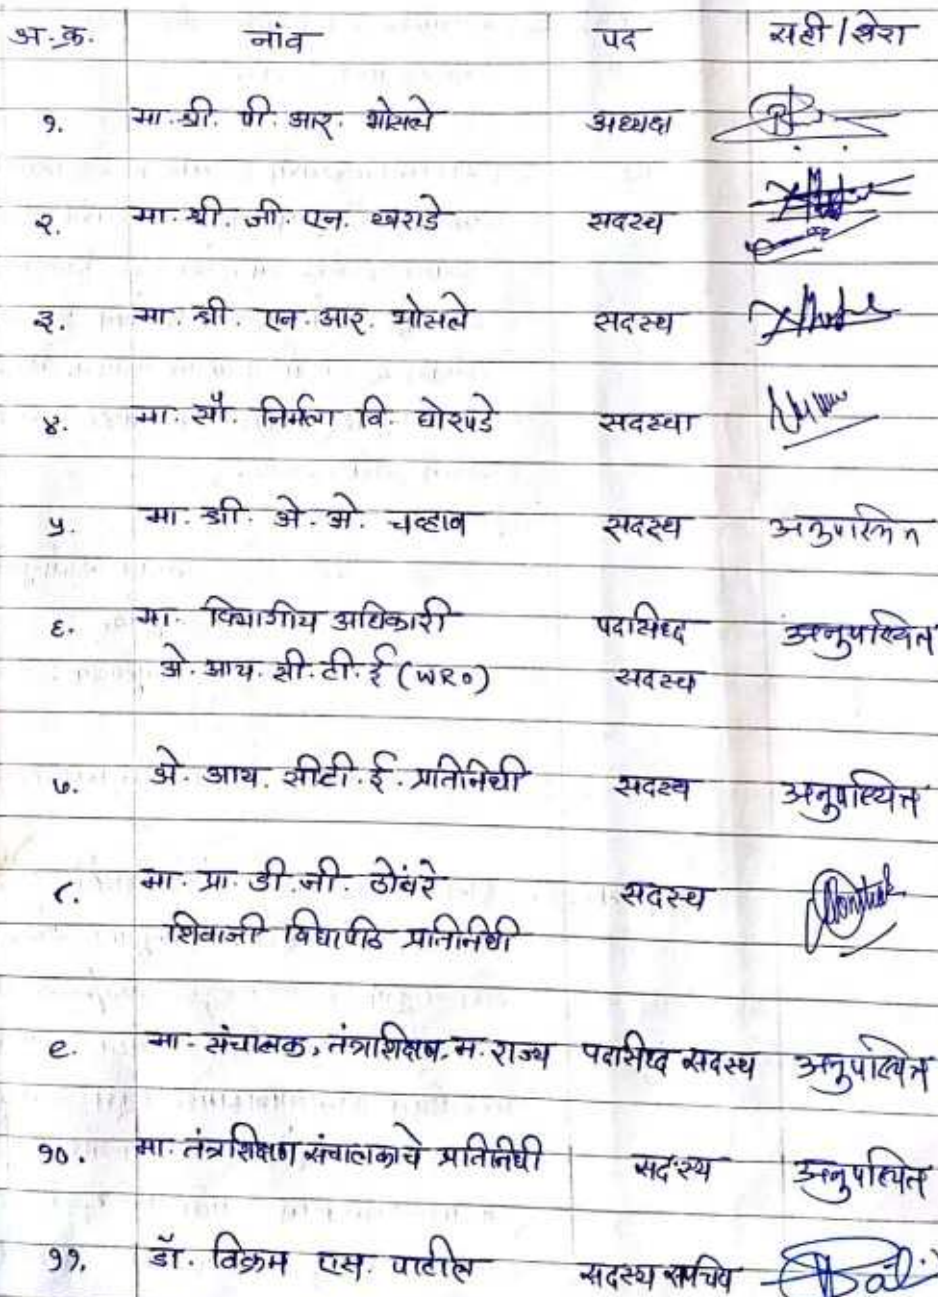 अ.क्र. नांव पद सही/शेरा
१. मा.श्री. पी. आर. भोसले अध्यक्ष
२. मा.श्री. जी. एन. खराडे सदस्य
३. मा. श्री. एन. आर. भोसले सदस्य
४. मा. सौ. निर्मला वि. घोरपडे सदस्या
५. मा. श्री. अे. अे. चव्हाण सदस्य अनुपस्थित
६. मा. विभागीय अधिकारी पदसिध्द अनुपस्थित
अे. आय. सी. टी. ई (WRO) सदस्य
७. अे. आय. सीटी. ई. प्रतिनिधी सदस्य अनुपस्थित
८. मा. प्रा. डी. जी. ठोंबरे सदस्य
शिवाजी विद्यापीठ प्रतिनिधी
९. मा. संचालक, तंत्रशिक्षण, म. राज्य पदसिध्द सदस्य अनुपस्थित
१०. मा. तंत्रशिक्षण संचालकाचे प्रतिनिधी सदस्य अनुपस्थित
११. डॉ. विक्रम एस. पाटील सदस्य सचिव